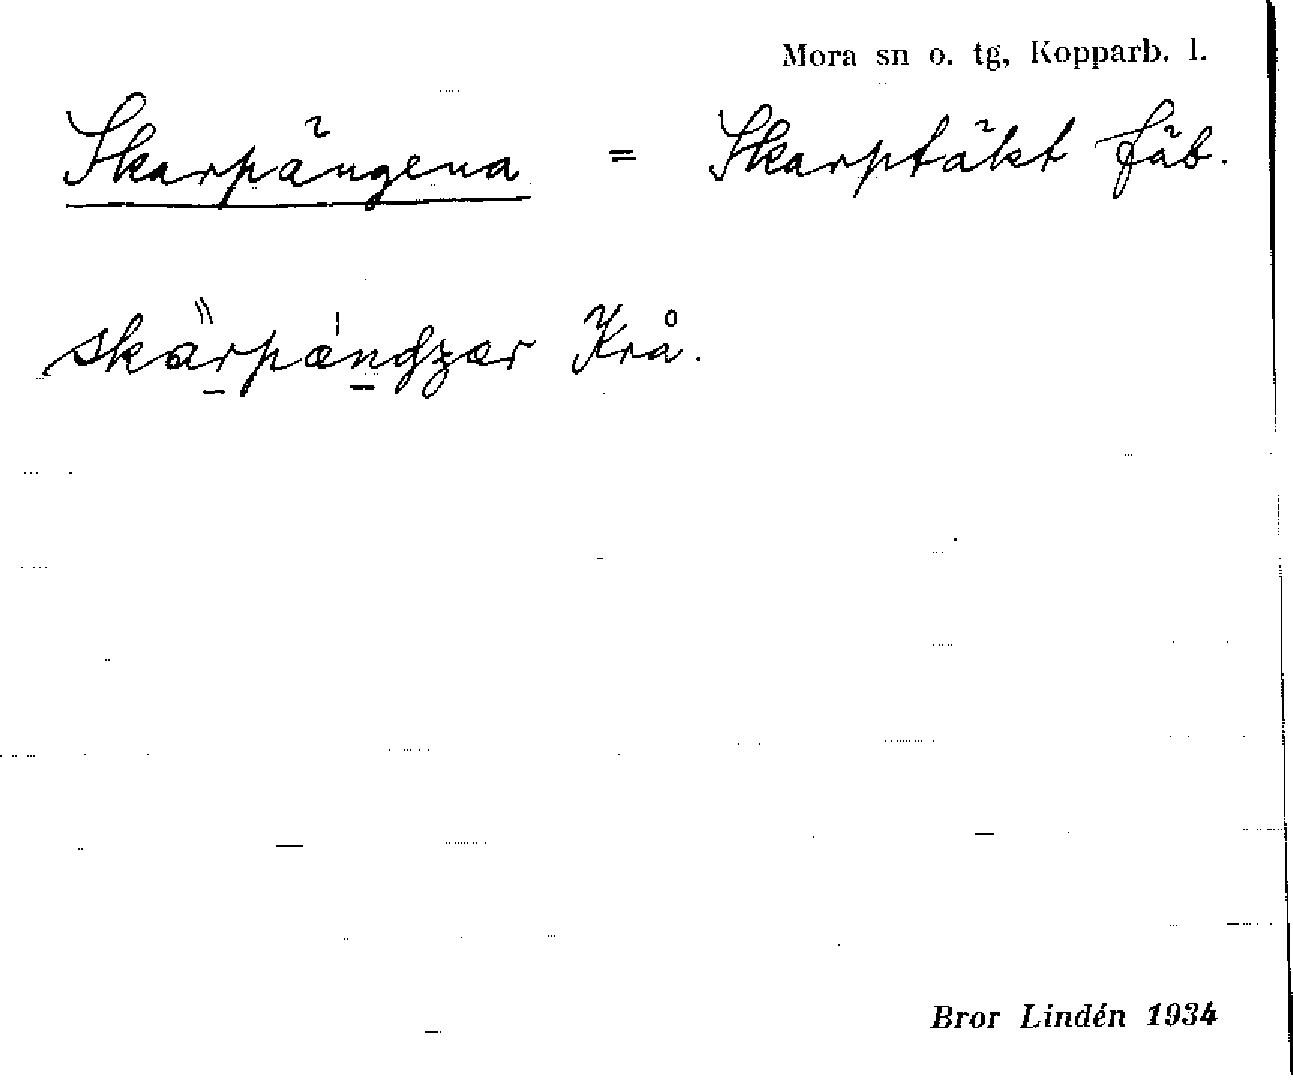 Mora sn o. tg, Kopparb. l.
Skarpängena = Skarptäkt fäb.
Krå.
Bror Lindén 1934